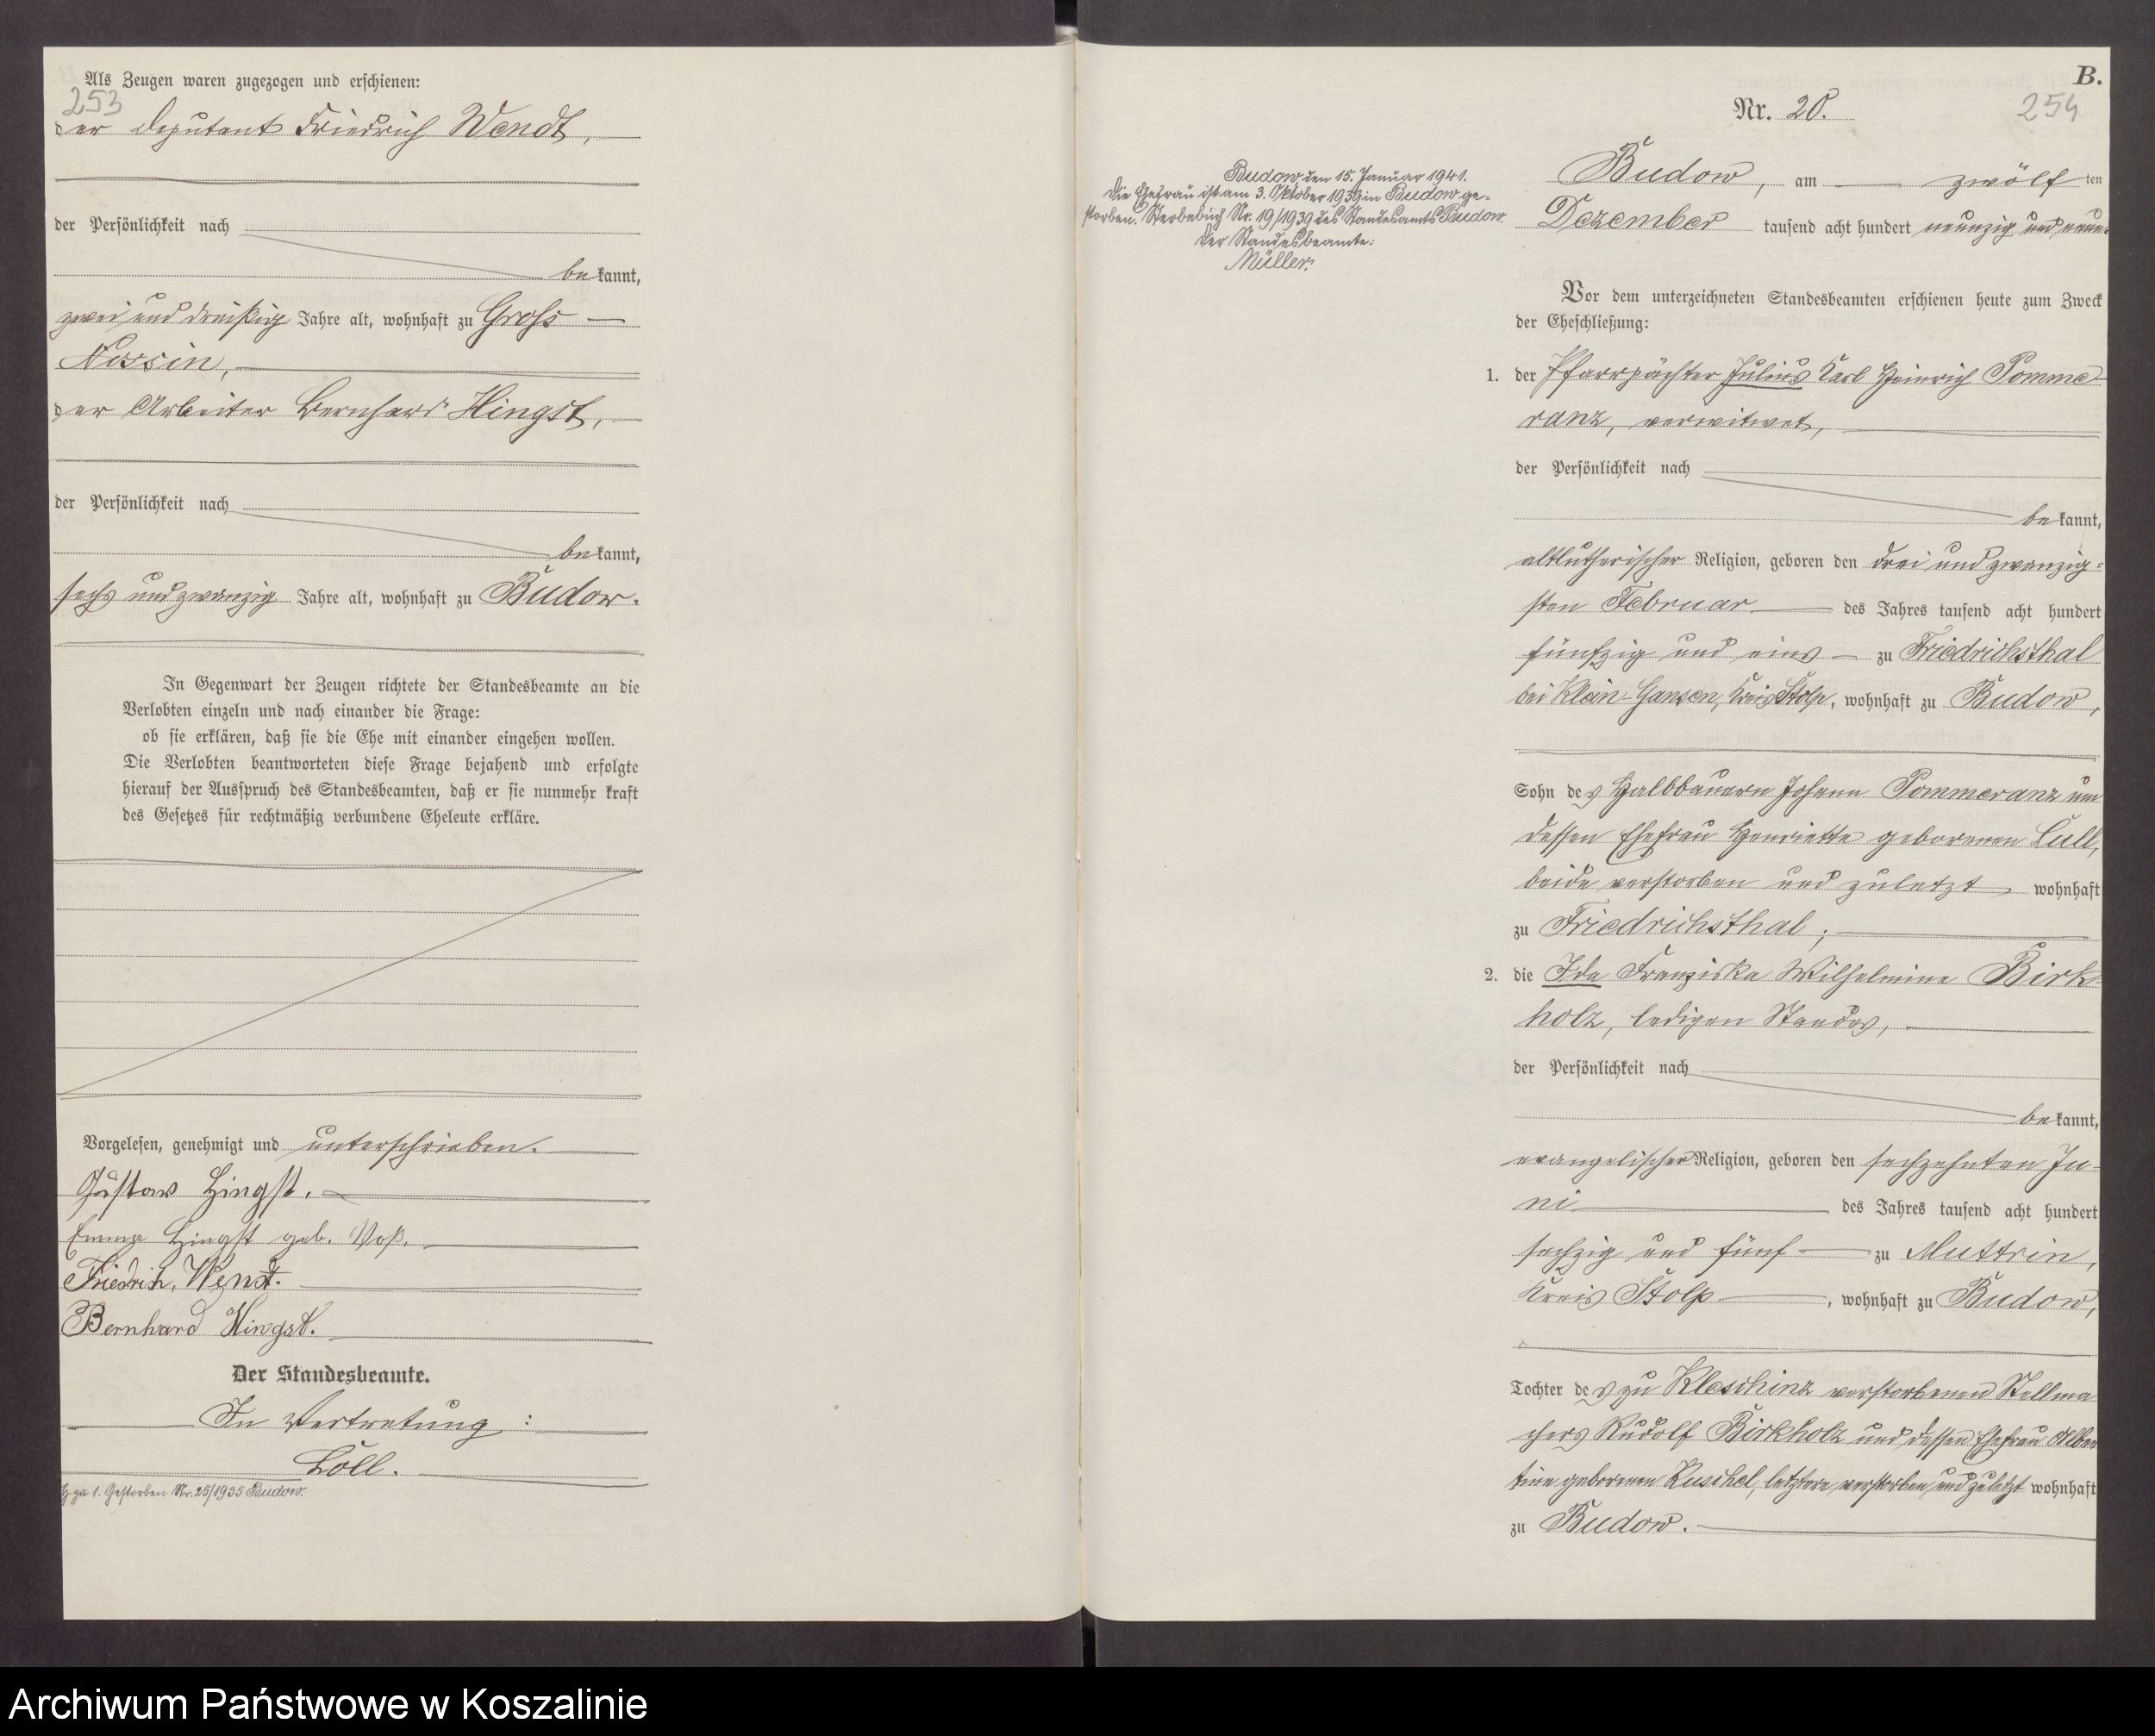 Als Zeugen waren zugezogen und erschienen:
253
der Deputant Friedrich Wendt,
der Persönlichkeit nach
bekannt,
zwei und dreißig Jahre alt, wohnhaft zu Gross
Nossin,
der Arbeiter Bernhard Hingst,
der Persönlichkeit nach
bekannt,
sechs und zwanzig Jahre alt, wohnhaft zu Budow.
In Gegenwart der Zeugen richtete der Standesbeamte an die
Verlobten einzeln und nach einander die Frage:
ob sie erklären, daß sie die Ehe mit einander eingehen wollen.
Die Verlobten beantworteten diese Frage bejahend und erfolgte
hierauf der Ausspruch des Standesbeamten, daß er sie nunmehr kraft
des Gesetzes für rechtmäßig verbundene Eheleute erkläre.
Vorgelesen, genehmigt und unterschrieben.
Gustav Hingst.
Emma Hingst geb. Voß.
Friedrich Wendt.
Bernhard Hingst.
Der Standesbeamte.
In Vertretung:
Löll.
H. zu 1. Gestorben Nr. 25/1935 Budow.
B.
254
Nr. 20.
Budow den 15. Januar 1941.
Die Ehefrau ist am 3. Oktober 1939 in Budow ge-
storben. Sterbebuch Nr. 19/1939 des Standesamts Budow.
Der Standesbeamte:
Müller.
Budow, am zwölften
Dezember tausend acht hundert neunzig und neun
Vor dem unterzeichneten Standesbeamten erschienen heute zum Zweck
der Eheschließung:
1. der Pfarrpächter Julius Karl Heinrich Pomme-
ranz, verwitwet,
der Persönlichkeit nach
bekannt,
altlutherischer Religion, geboren den drei und zwanzig-
sten Februar des Jahres tausend acht hundert
fünfzig und eins zu Friedrichsthal
bei Klein-Gansen, Kreis Stolp, wohnhaft zu Budow,
Sohn des Halbbauern Johann Pommeranz und
dessen Ehefrau Henriette geborenen Lüll,
beide verstorben und zuletzt wohnhaft
zu Friedrichsthal;
2. die Ida Franziska Wilhelmine Birk-
holz, ledigen Standes,
der Persönlichkeit nach
bekannt,
evangelischer Religion, geboren den sechzehnten Ju-
ni des Jahres tausend acht hundert
sechzig und fünf zu Muttrin,
Kreis Stolp, wohnhaft zu Budow,
Tochter des zu Kleschinz verstorbenen Stellma-
chers Rudolf Birkholz und dessen Ehefrau Alber
tine geborenen Ruschel, letztere verstorben und zuletzt wohnhaft
zu Budow.
Archiwum Państwowe w Koszalinie